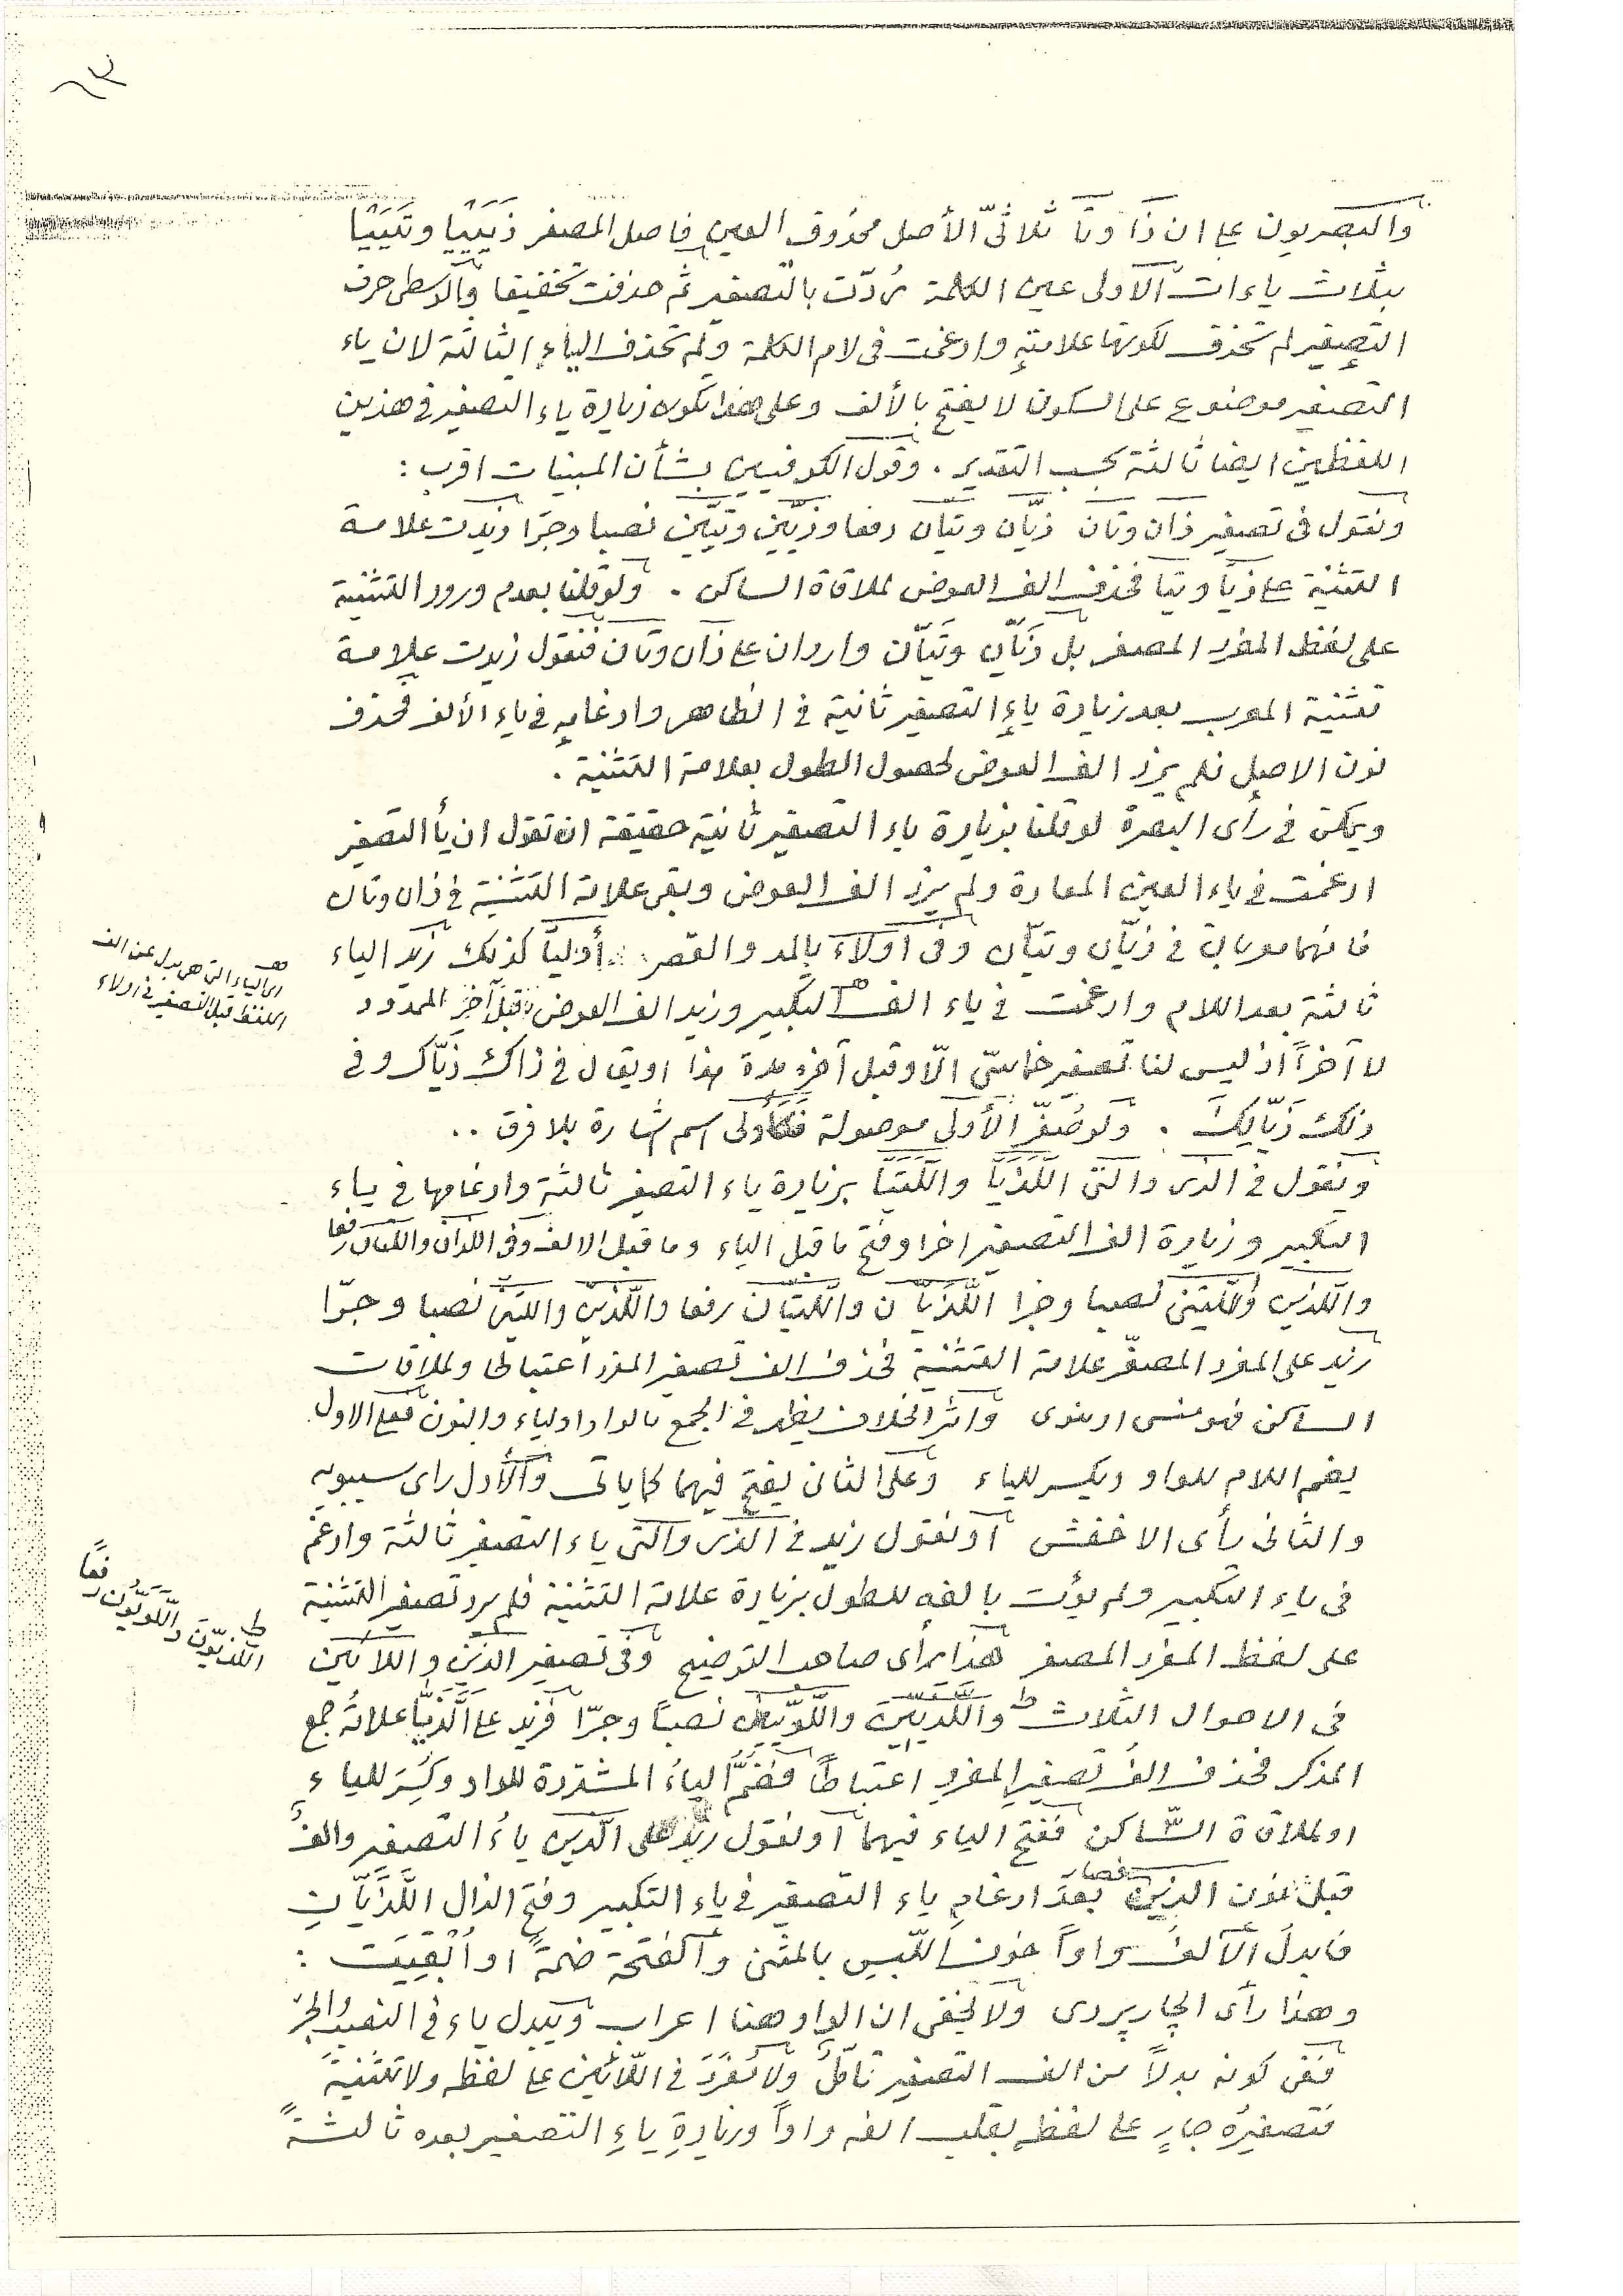 ٦٣
والبصريون على ان ذَا وتَا ثلاثىّ الأصل محذوف العين فاصل المصغر ذَيَيْيَا وتَيَيْيَا
بثلاث ياءات الاولى عين الكلمة رُدّت بالتصغير ثم حذفت تخفيفا والوسطى حرف
التصغير لم تحذف لكونها علامةٍ وادغمت فى لام الكلمة ولم تحذف الياء الثالثة لان ياء
التصغير موضوع على السكون لا يفتح بالألف وعلى هذا تكون زيادة ياء التصغير فى هذين
اللفظين ايضا ثالثة بحسب التقدير . وقول الكوفيين بشأن المبنيات اقرب :
ونقول فى تصغير ذان وتان ذيّان وتيّان رفعا وذيّين وتيّين نصبا وجرّا وزيدت علامة
التثنية على ذيّا وتيّا فحذف الف العوض لملاقاة الساكن . ولو قلنا بعدم ورود التثنية
على لفظ المفرد المصغر بل ذَيّان وتَيّان واردان على ذان وتان فنقول زيدت علامة
تثنية المعرب بعد زيادة ياءِ التصغير ثانية فى الظاهر وادغامِه فى ياء الألف فحذف
نون الاصل فلم يزد الف العوض لحصول الطول بعلامة التثنية .
ويمكن فى رأى البصرة لو قلنا بزيادة ياء التصغير ثانية حقيقة ان تقول ان يأ التصغير
ادغمت فى ياء العين المعادة ولم يزد الف العوض وبقى علامة التثنية فى ذان وتان
فانهما معربان فى ذيّان وتيّان وفى اولاء بالمد والقصر أُوليّا كذلك زيد الياء
ثالثة بعد اللام وادغمت فى ياء الف التكبير وزيد الف العوض قبل آخِرِ الممدود
لا آخراً اذ ليس لنا تصغير خماسىّ الّا وقبل آخره مدة هذا او يقال فى ذاك ذيّاك وفى
ذلك ذَيّالِكَ . ولو صُغّر الأولى موصولة فكاولى اسم اشارة بلا فرق ..
ونقول فى الذى والتى اللَّذَيّا واللَّتَيّا بزيادة ياء التصغير ثالثة وادغامها فى ياء
التكبير وزيادة الف التصغير اخرا وفتح ما قبل الياء وما قبل الالف وفى اللذان واللتان رفعا
واللذين واللتين نصبا وجرا اللَّذَيّان واللَّتيّان رفعا واللَّذيّين واللتيّين نصبا وجرّا
زيد على المفرد المصغّر علامة التثنية فحذف الف تصغير المفرد اعتباطا او لملاقات
الساكن فهو منسى او منوى واثر الخلاف يظهر فى الجمع بالواو او لياء والنون فعلى الاول
يضم اللام للواو ويكسر للياء وعلى الثانى يفتح فيهما كما ياتى والأول راى سيبويه
والثانى رأى الاخفش او نقول زيد فى الذى والتى ياء التصغير ثالثة وادغم
فى ياء التكبير ولم يؤت بالفه للطول بزيادة علامة التثنية فلم يرد تصغير التثنية
على لفظ المفرد المصغر هذا رأى صاحب التوضيح وفى تصغير الذين واللائين
فى الاحوال الثلاث واللَّذَيّين واللَّوَيّين نصباً وجرّا فزيد على اللَّذَيّا علامةُ جمع
المذكر فحذف الفُ تصغيرِ المفردِ اعتباطاً فضُمَّ الياءُ المشدّدة للواو وكُسِرَ للياءِ
او لملاقاة السّاكن ففتح الياء فيهما او نقول زِيْدَ على الّذين ياءُ التصغير والفُ
قبل نون الذين بعدَ ادغامِ ياء التصغير فى ياء التكبير وفتح الذال فصار اللَّذَيّانِ
فابدلَ الألفُ واواً خوف اللَّبسِ بالمثنى والفتحة ضمةً او اُبْقِيَت :
وهذا رأى الجاربردى ولا يخفى ان الواو هنا اعراب ويبدل ياء فى النصب والجرّ
ففى كونه بدلاً من الف التصغير تأمّلٌ ولا مُفْرَدَ فى اللّائين على لفظه ولا تثنيةَ
فتصغيرُه جارٍ على لفظِه بقلب الفه واواً وزيادةِ ياءِ التصغير بعده ثالثةً
اى الياء التى هى بدل عن الف
اللفظ قبل التصغير فى اولاء
اللذيّون واللّويّون رفعًا